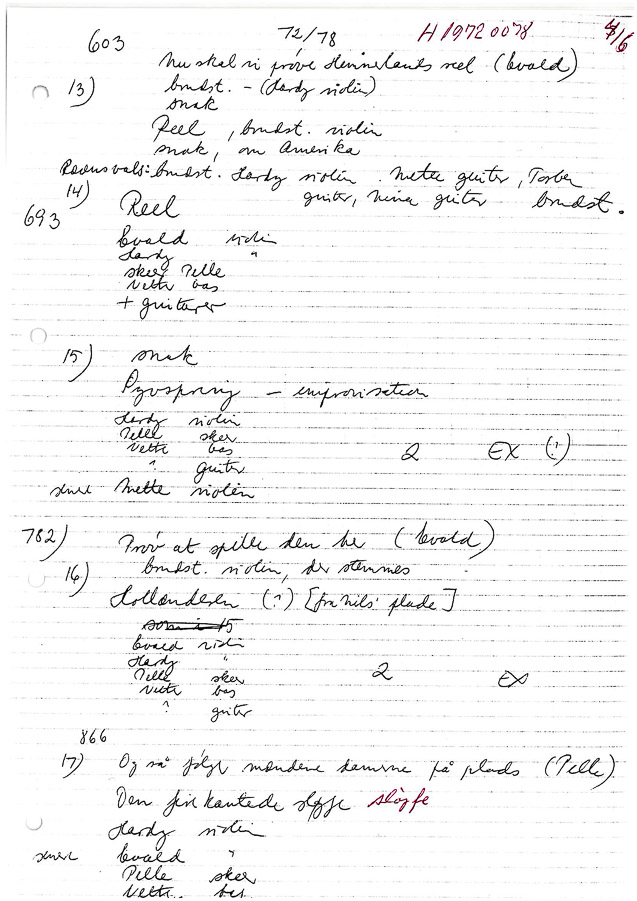 603 72/78 H 1972 0078 4/6
Nu skal vi prøve Hinnerlands reel (Evald)
13) brudst. - (Hardy violin)
snak
Reel, brudst. violin
snak, om Amerika
brudst. Hardy violin. Mette guitar, Torben
14) guitar, Nina guitar brudst.
693 Reel
Evald violin
Hardy "
skeer Pelle
Vette bas
+ guitarer
15) snak
- improvisation
Hardy violin
Pelle skeer
Vette bas 2 EX (?)
? guitar
senere Mette violin
782) Prøv at spille den her (Evald)
16) brudst. violin, der stemmes
Hollænderen (?) [fra Nils' plade]
som i 15
Evald violin
Hardy "
Pelle skeer 2 EX
Vette bas
? guitar
866
17) Og så følge mændene damerne på plads (Pelle)
Den firkantede sløjfe sløjfe
Hardy violin
senere Evald "
Pelle skeer
Vette bas